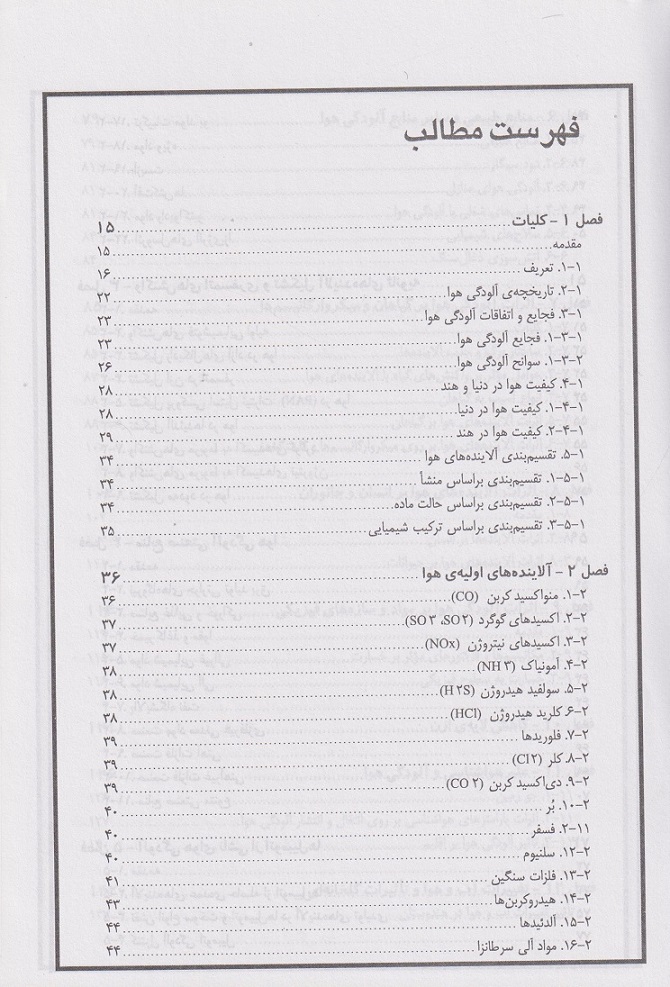 فهرست مطالب
فصل ۱ - کلیات ۱۵
مقدمه ۱۵
۱-۱. تعریف ۱۶
۱-۲. تاریخچه‌ی آلودگی هوا ۲۲
۱-۳. فجایع و اتفاقات آلودگی هوا ۲۳
۱-۳-۱. فجایع آلودگی هوا ۲۳
۱-۳-۲. سوانح آلودگی هوا ۲۶
۱-۴. کیفیت هوا در دنیا و هند ۲۸
۱-۴-۱. کیفیت هوا در دنیا ۲۸
۱-۴-۲. کیفیت هوا در هند ۲۹
۱-۵. تقسیم‌بندی آلاینده‌های هوا ۳۴
۱-۵-۱. تقسیم‌بندی براساس منشأ ۳۴
۱-۵-۲. تقسیم‌بندی براساس حالت ماده ۳۴
۱-۵-۳. تقسیم‌بندی براساس ترکیب شیمیایی ۳۵
فصل ۲ - آلاینده‌های اولیه‌ی هوا ۳۶
۲-۱. منواکسید کربن (CO) ۳۶
۲-۲. اکسیدهای گوگرد (SO۳ ،SO۲) ۳۷
۲-۳. اکسیدهای نیتروژن (NOx) ۳۷
۲-۴. آمونیاک (NH۳) ۳۸
۲-۵. سولفید هیدروژن (H۲S) ۳۸
۲-۶. کلرید هیدروژن (HCl) ۳۸
۲-۷. فلوریدها ۳۹
۲-۸. کلر (Cl۲) ۳۹
۲-۹. دی‌اکسید کربن (CO۲) ۳۹
۲-۱۰. بُر ۴۰
۲-۱۱. فسفر ۴۰
۲-۱۲. سلنیوم ۴۰
۲-۱۳. فلزات سنگین ۴۱
۲-۱۴. هیدروکربن‌ها ۴۳
۲-۱۵. آلدئیدها ۴۴
۲-۱۶. مواد آلی سرطانزا ۴۴